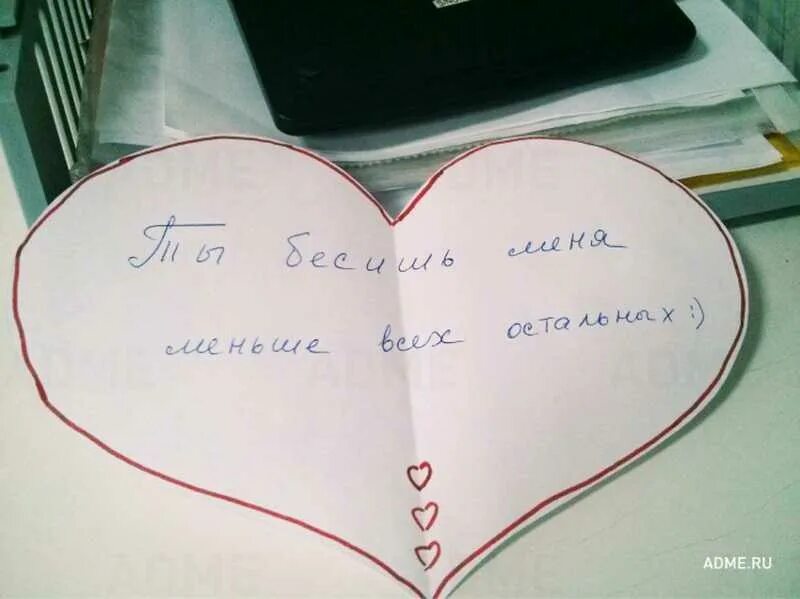 Ты бесишь меня
меньше всех остальных :)
ADME.RU